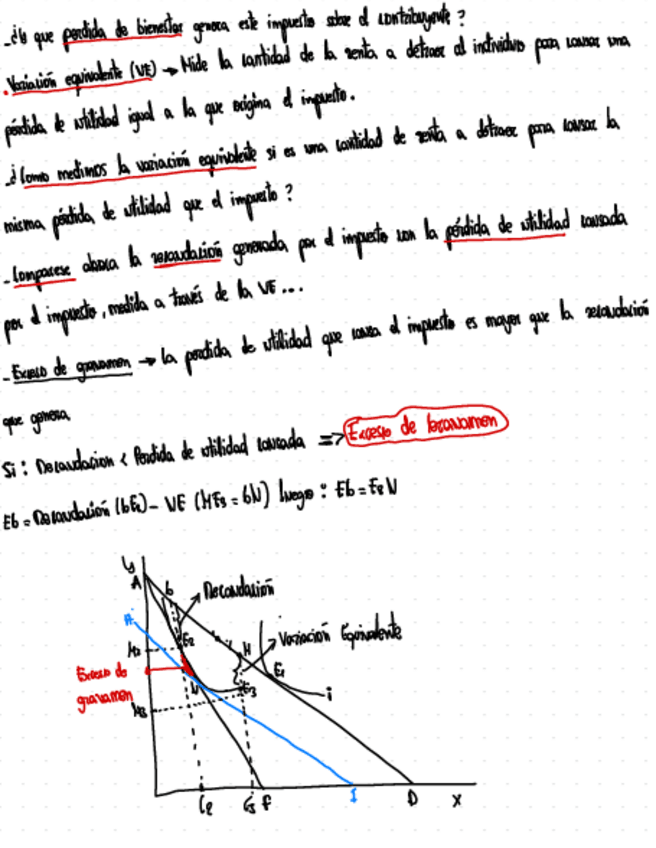 -¿Y que perdida de bienestar genera este impuesto sobre el contribuyente?
. Variación equivalente (VE) → Mide la cantidad de la renta a detraer al individuo para causar una
pérdida de utilidad igual a la que origina el impuesto.
-¿Como medimos la variación equivalente si es una cantidad de renta a detraer para causar la
misma pérdida de utilidad que el impuesto?
-Comparese ahora la recaudación generada por el impuesto con la pérdida de utilidad causada
por el impuesto, medida a través de la VE...
-Exceso de gravamen → la perdida de utilidad que causa el impuesto es mayor que la recaudación
que genera
Si: Recaudacion < Perdida de utilidad causada => Exceso de Gravamen
EG = Recaudación (bE2) - VE (HE3 = bN) luego: EG = E2N
y
A
b
Recaudación
H
Variación Equivalente
M2
E2
Exceso de
gravamen
N
E3
E1
i
M3
C2
C3
F
I
D
X